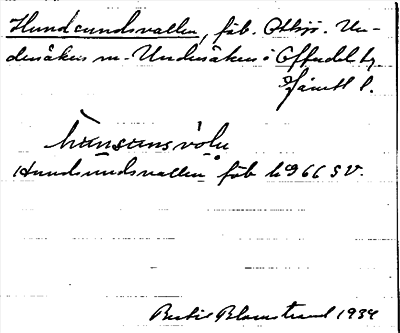 Hundsundsvallen, fäb. Ottsjö. Un-
dersåkers sn. Undersåkers o Offerdal tg
Jämtl l.
hu̇nsunsvo̊ln
Hundsundsvallen fäb k966 SV.
Bertil Blomstrand 1934